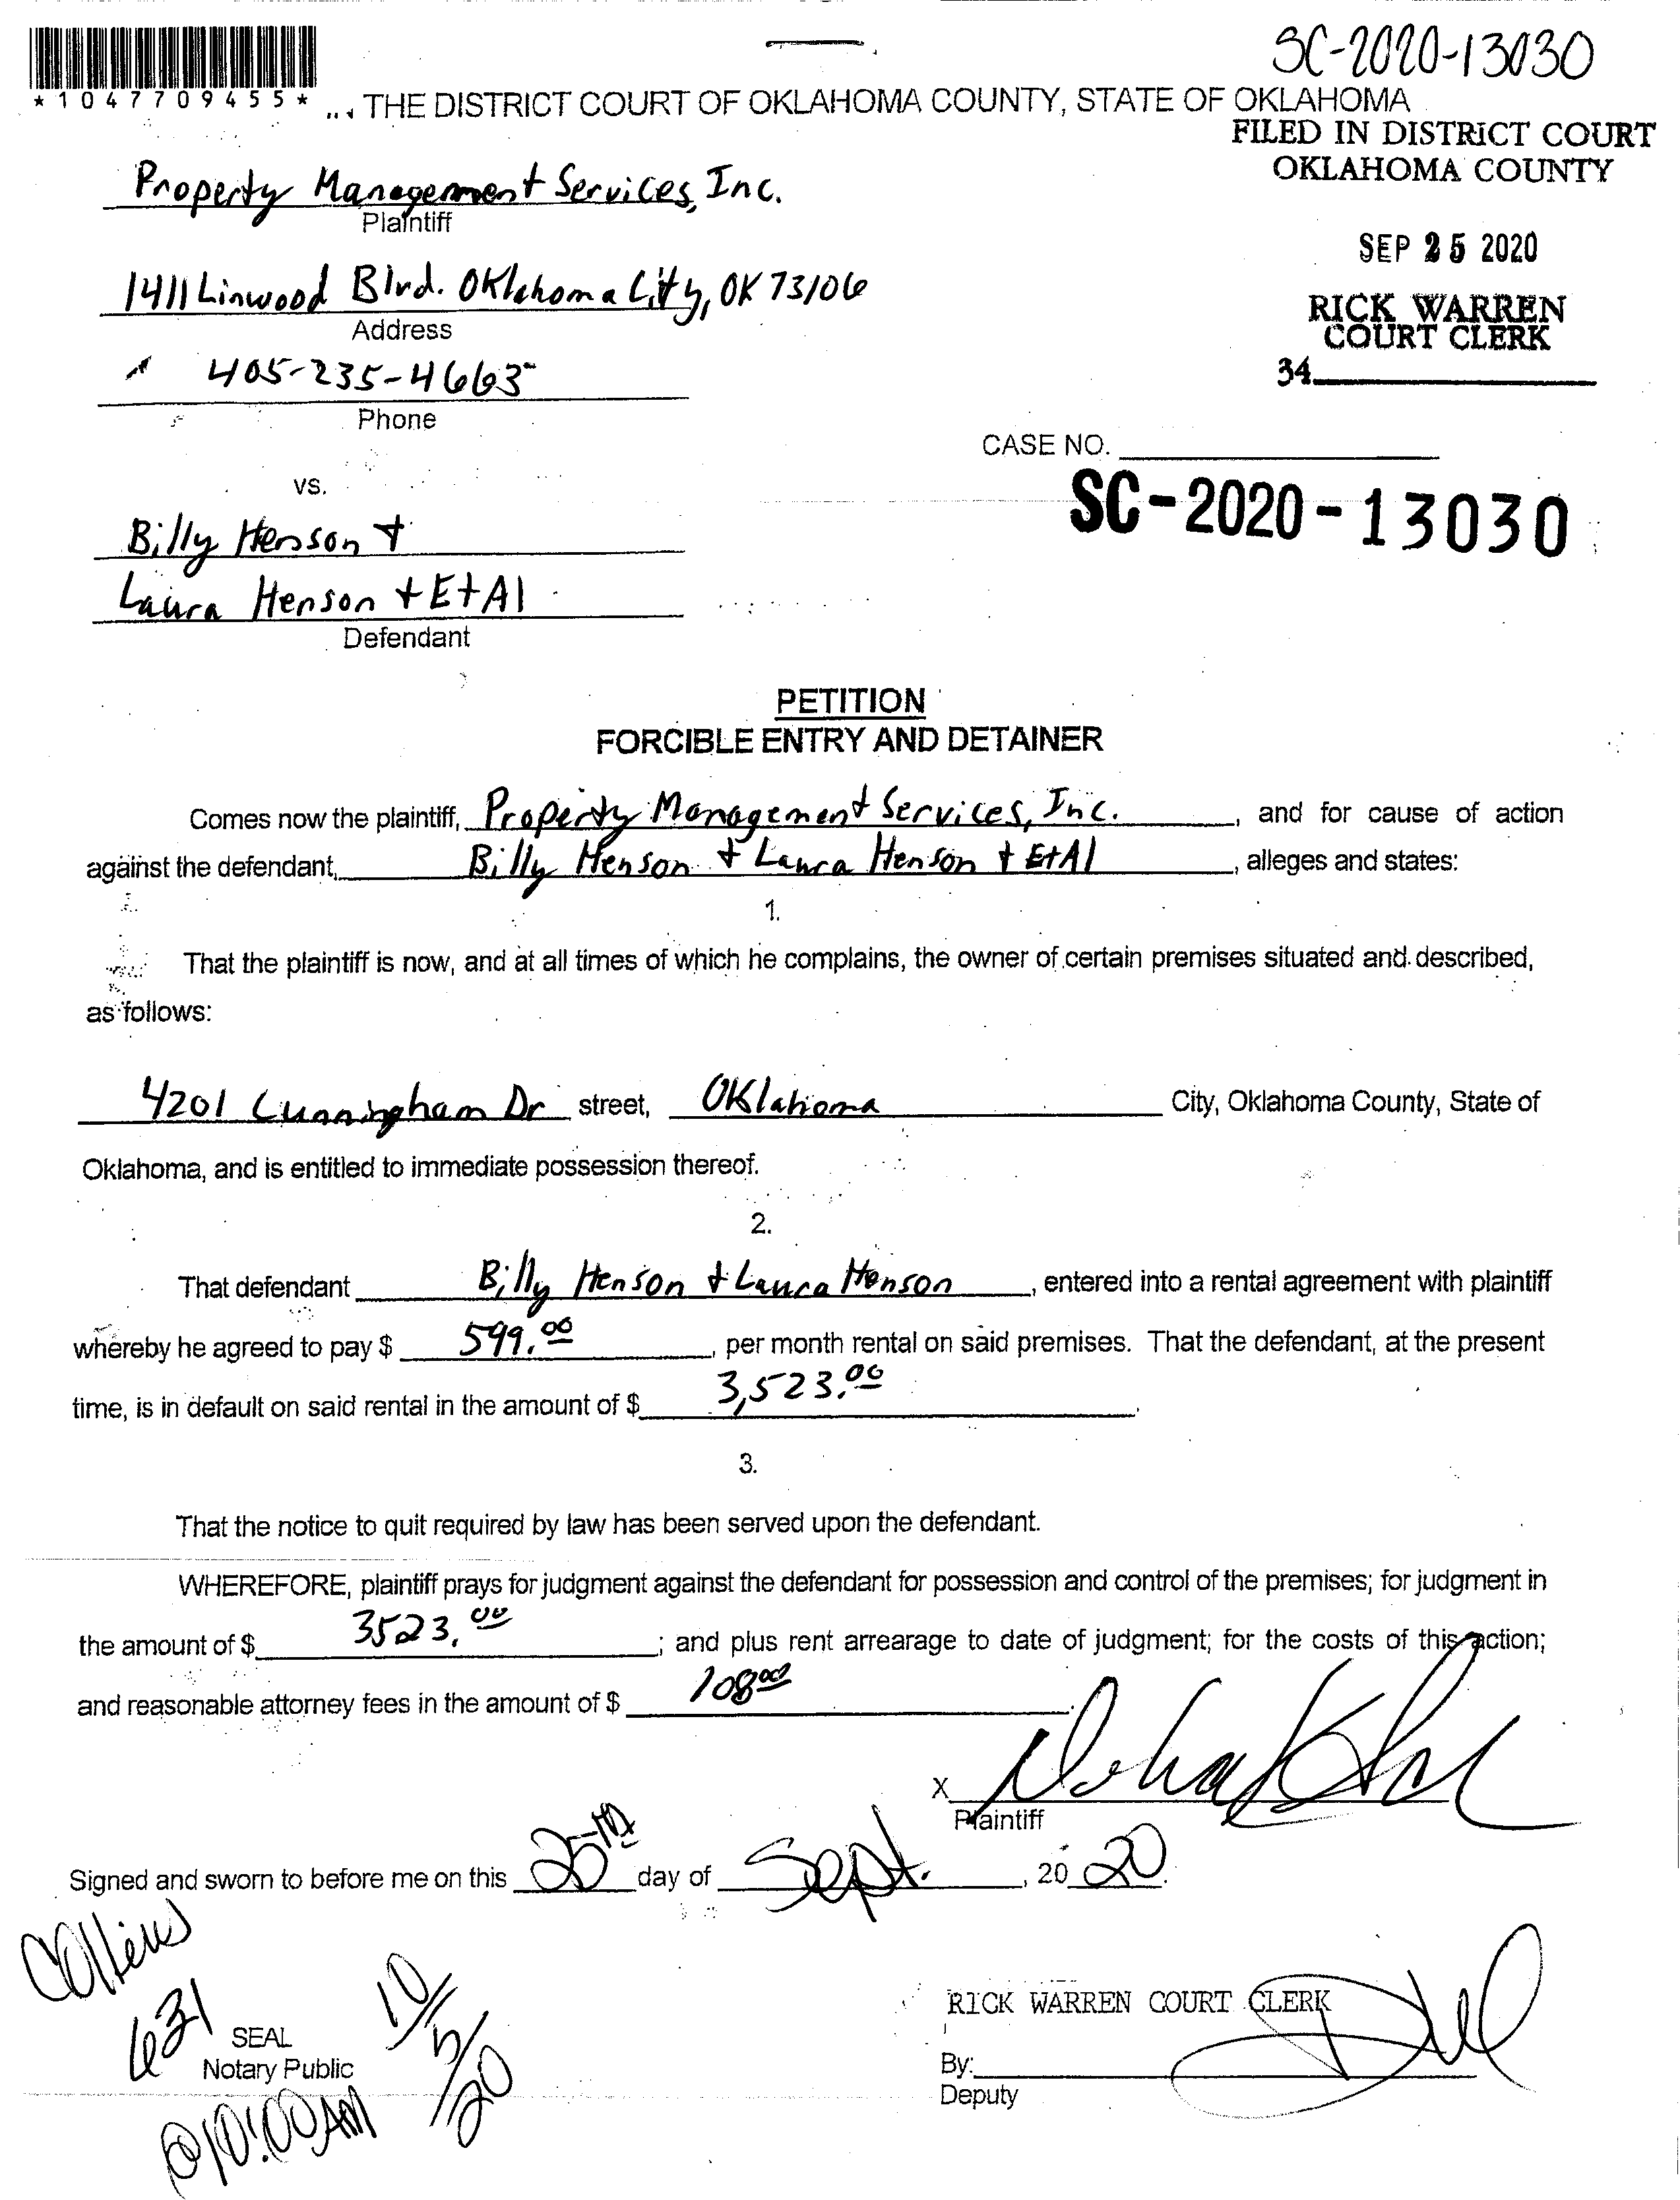 SC-2020-13030
*1047709455*
THE DISTRICT COURT OF OKLAHOMA COUNTY, STATE OF OKLAHOMA
FILED IN DISTRICT COURT
OKLAHOMA COUNTY
Property Management Services, Inc.
Plaintiff
SEP 25 2020
1411 Linwood Blvd. Oklahoma City, OK 73106
Address
RICK WARREN
COURT CLERK
405-235-4663
34
Phone
CASE NO.
vs.
SC-2020-13030
Billy Henson +
Laura Henson + Et Al
Defendant
PETITION
FORCIBLE ENTRY AND DETAINER
Comes now the plaintiff, Property Management Services, Inc. , and for cause of action
against the defendant, Billy Henson + Laura Henson + Et Al , alleges and states:
1.
That the plaintiff is now, and at all times of which he complains, the owner of certain premises situated and described,
as follows:
4201 Cunningham Dr street, Oklahoma City, Oklahoma County, State of
Oklahoma, and is entitled to immediate possession thereof.
2.
That defendant Billy Henson + Laura Henson , entered into a rental agreement with plaintiff
whereby he agreed to pay $ 599.00 , per month rental on said premises. That the defendant, at the present
time, is in default on said rental in the amount of $ 3,523.00 .
3.
That the notice to quit required by law has been served upon the defendant.
WHEREFORE, plaintiff prays for judgment against the defendant for possession and control of the premises; for judgment in
the amount of $ 3523.00 ; and plus rent arrearage to date of judgment; for the costs of this action;
and reasonable attorney fees in the amount of $ 108.00 .
X
Plaintiff
Signed and sworn to before me on this 25th day of Sept. , 20 20 .
Collins
631
10/5/20
SEAL
Notary Public
@10:00AM
RICK WARREN COURT CLERK
By:
Deputy